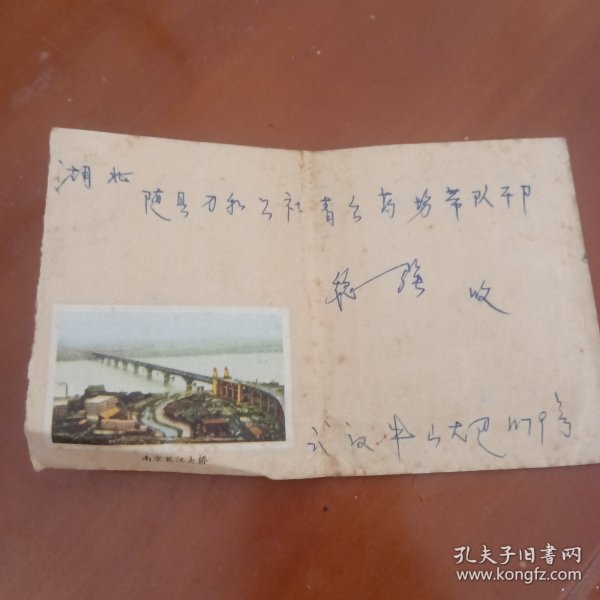 湖北
随县万和公社青台药场带队干部
收
武汉中山大道1179号
南京长江大桥
孔夫子旧书网
www.kongfz.com